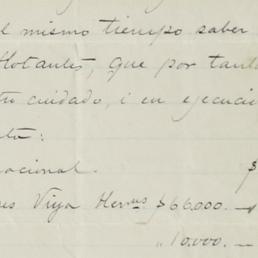 l mismo tiempo saber
flotantes, que por tanto
tu cuidado, i en ejecuci
ta:
acional. $
es Viya Hermus $66.000.—
" 10.000.—